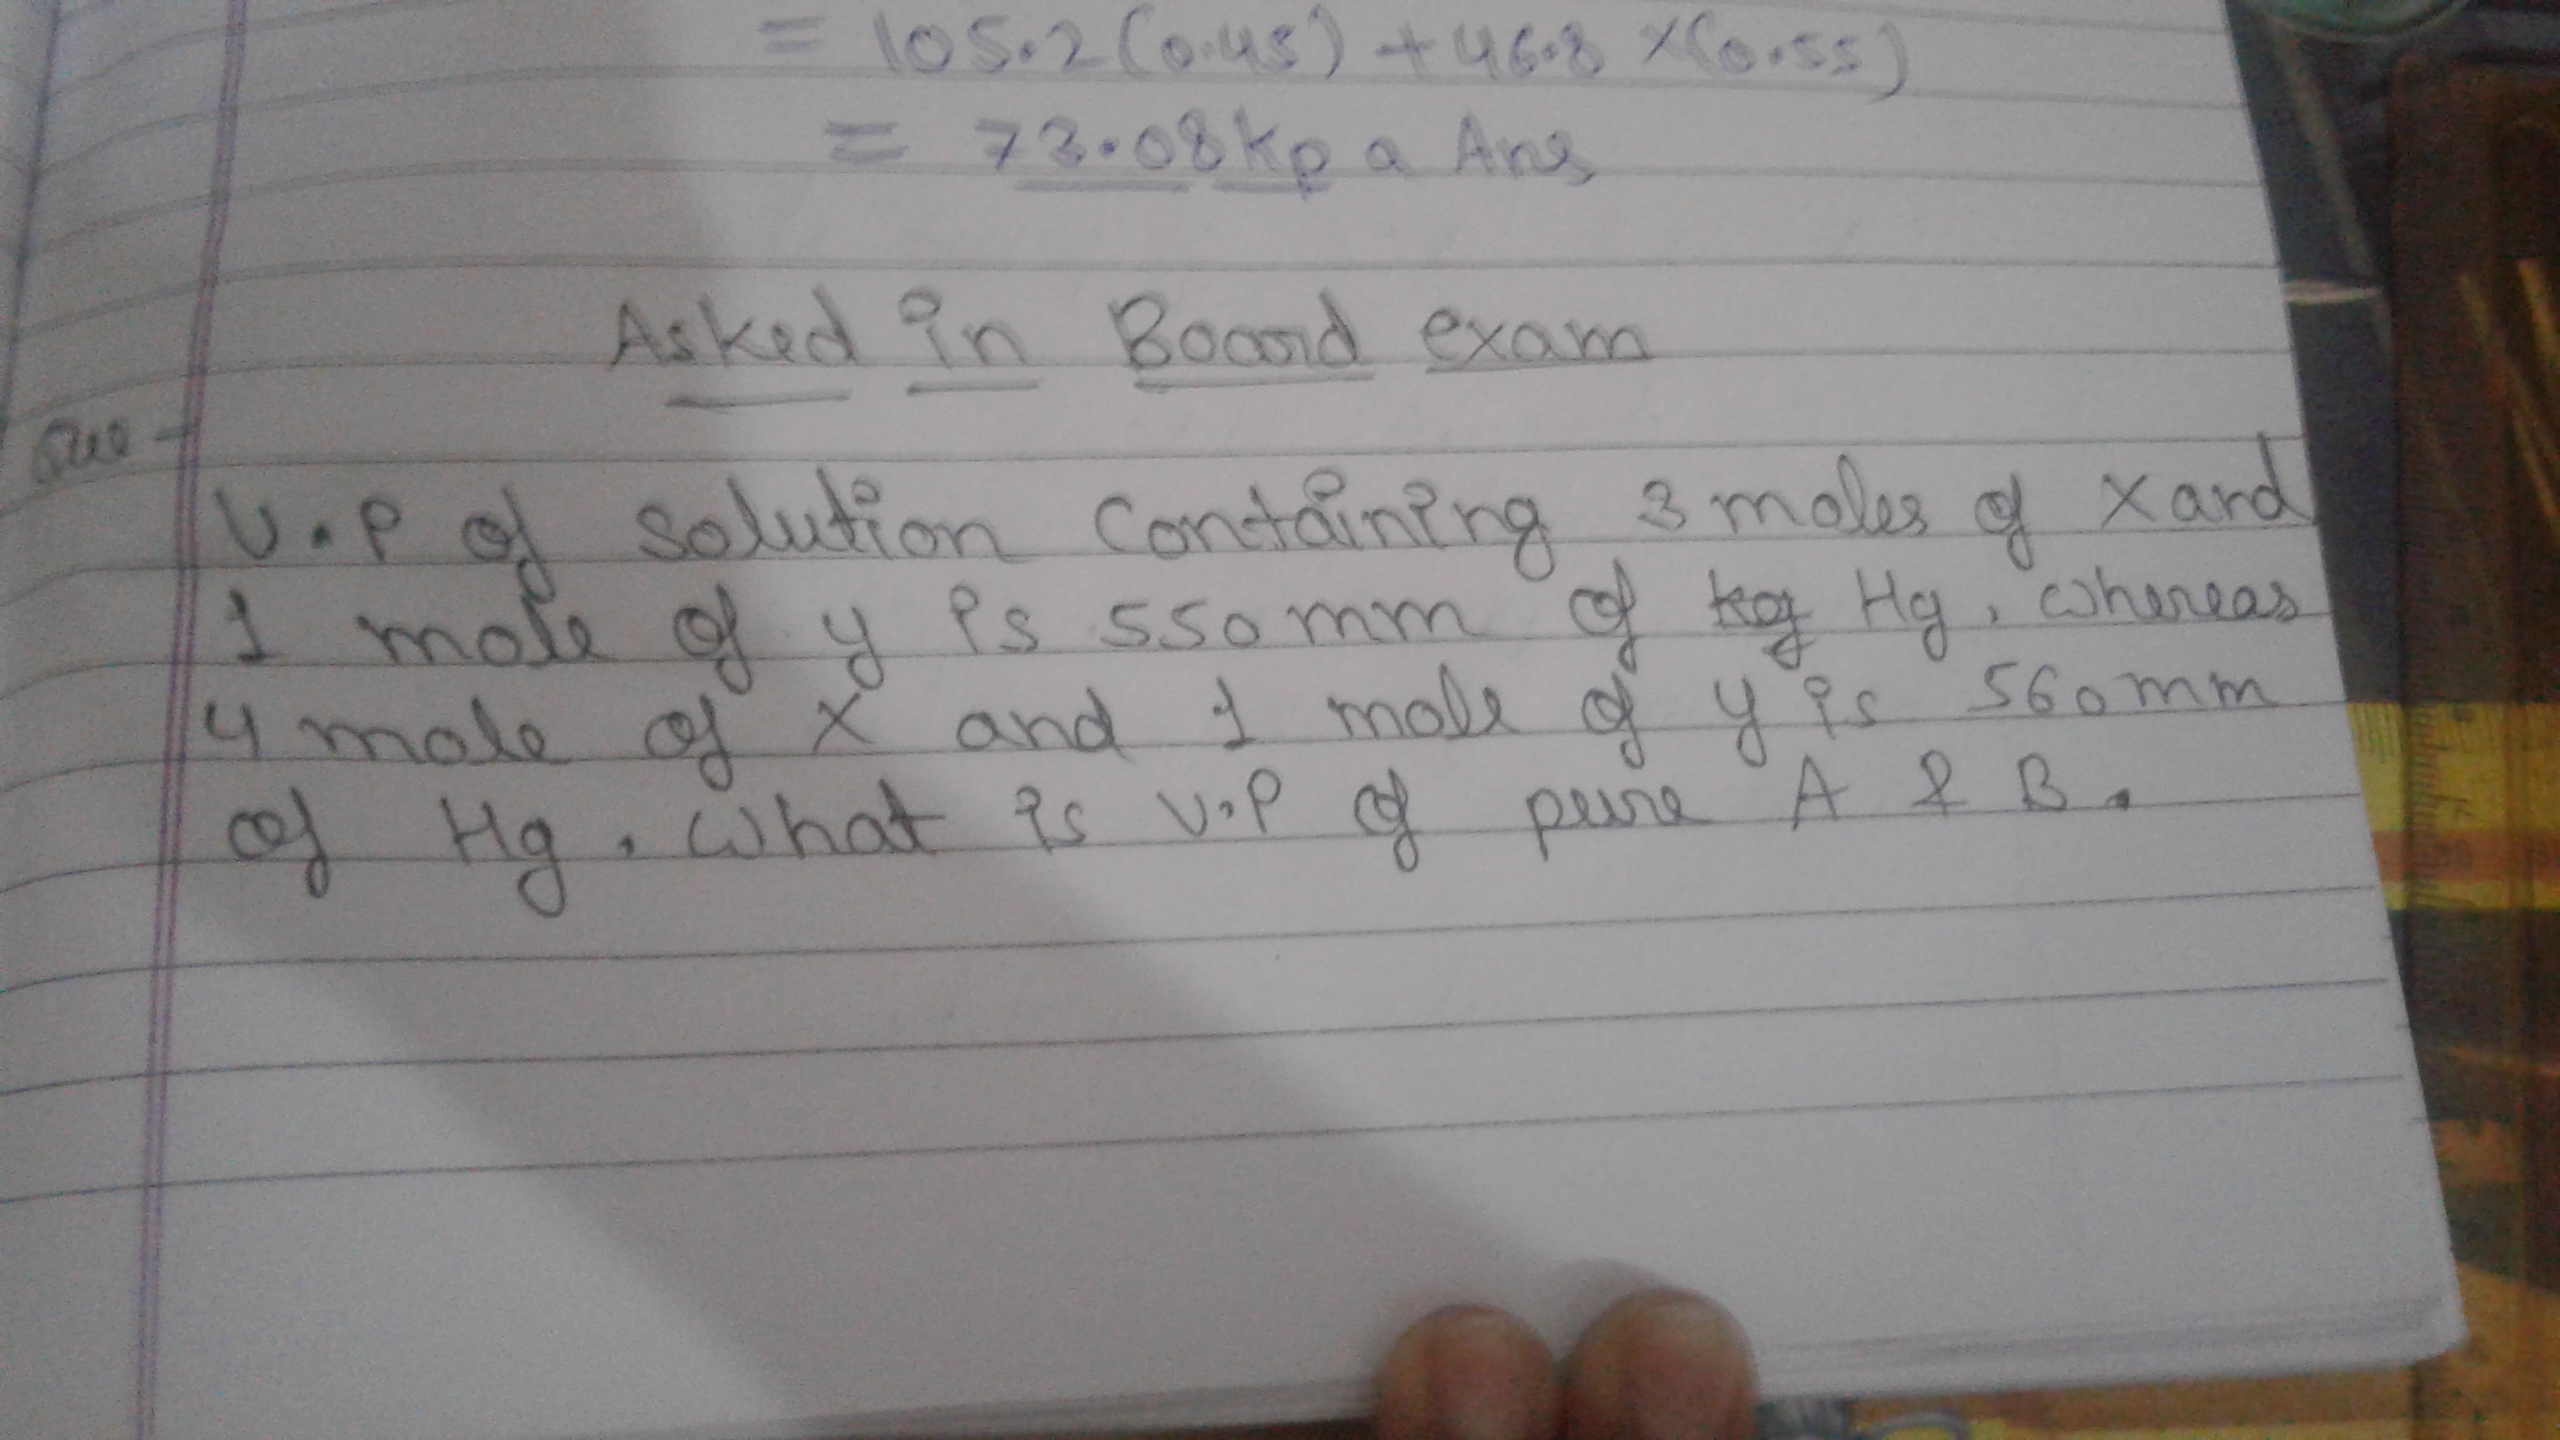 = 105.2(0.45) + 46.8 x(0.55)
= 73.08kp a Ans
Asked in Board exam
Que - V.P of solution Containing 3 moles of X and
1 mole of y is 550 mm of Hg, whereas
4 mole of x and 1 mole of y is 560 mm
of Hg. What is v.p of pure A & B.